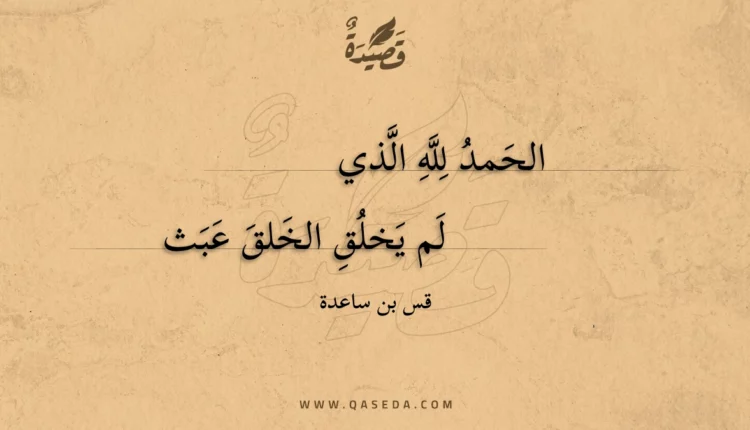 قَصِيدَةٌ
الحَمدُ لِلَّهِ الَّذي
لَم يَخلُقِ الخَلقَ عَبَث
قس بن ساعدة
WWW.QASEDA.COM